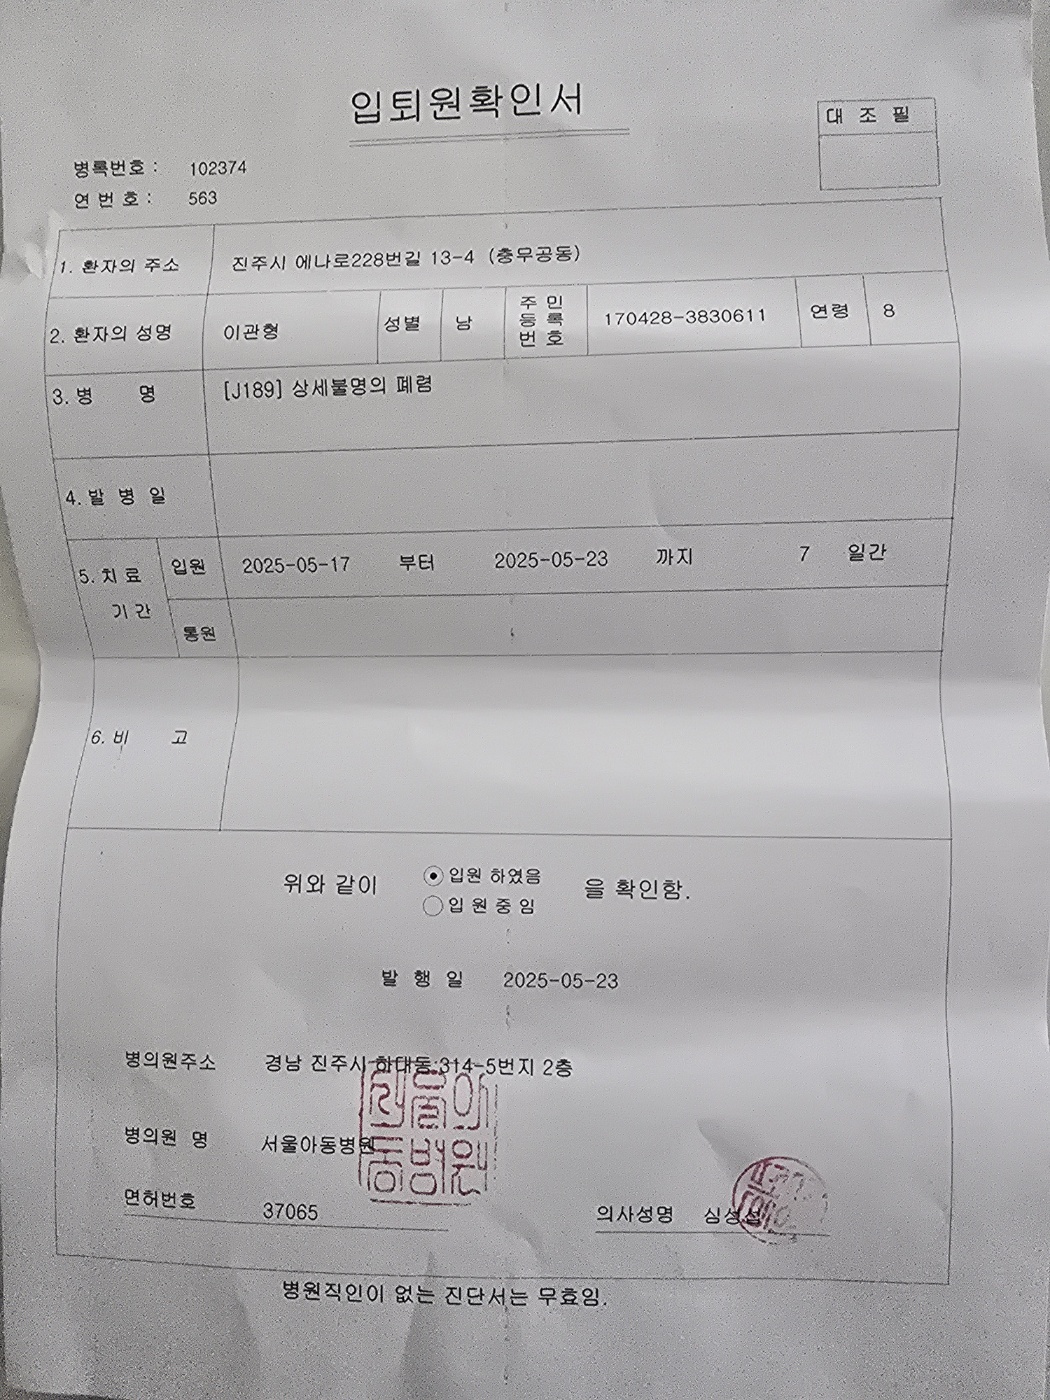 입퇴원확인서
대 조 필
병록번호 : 102374
연 번 호 : 563
1. 환자의 주소 진주시 에나로228번길 13-4 (충무공동)
2. 환자의 성명 이관형 성별 남 주민등록번호 170428-3830611 연령 8
3. 병 명 [J189] 상세불명의 폐렴
4. 발 병 일
5. 치료 기간 입원 2025-05-17 부터 2025-05-23 까지 7 일간
통원
6. 비 고
위와 같이 입원 하였음 을 확인함.
입 원 중 임
발 행 일 2025-05-23
병의원주소 경남 진주시 하대동 314-5번지 2층
병의원 명 서울아동병원
면허번호 37065 의사성명 심성섭
병원직인이 없는 진단서는 무효임.